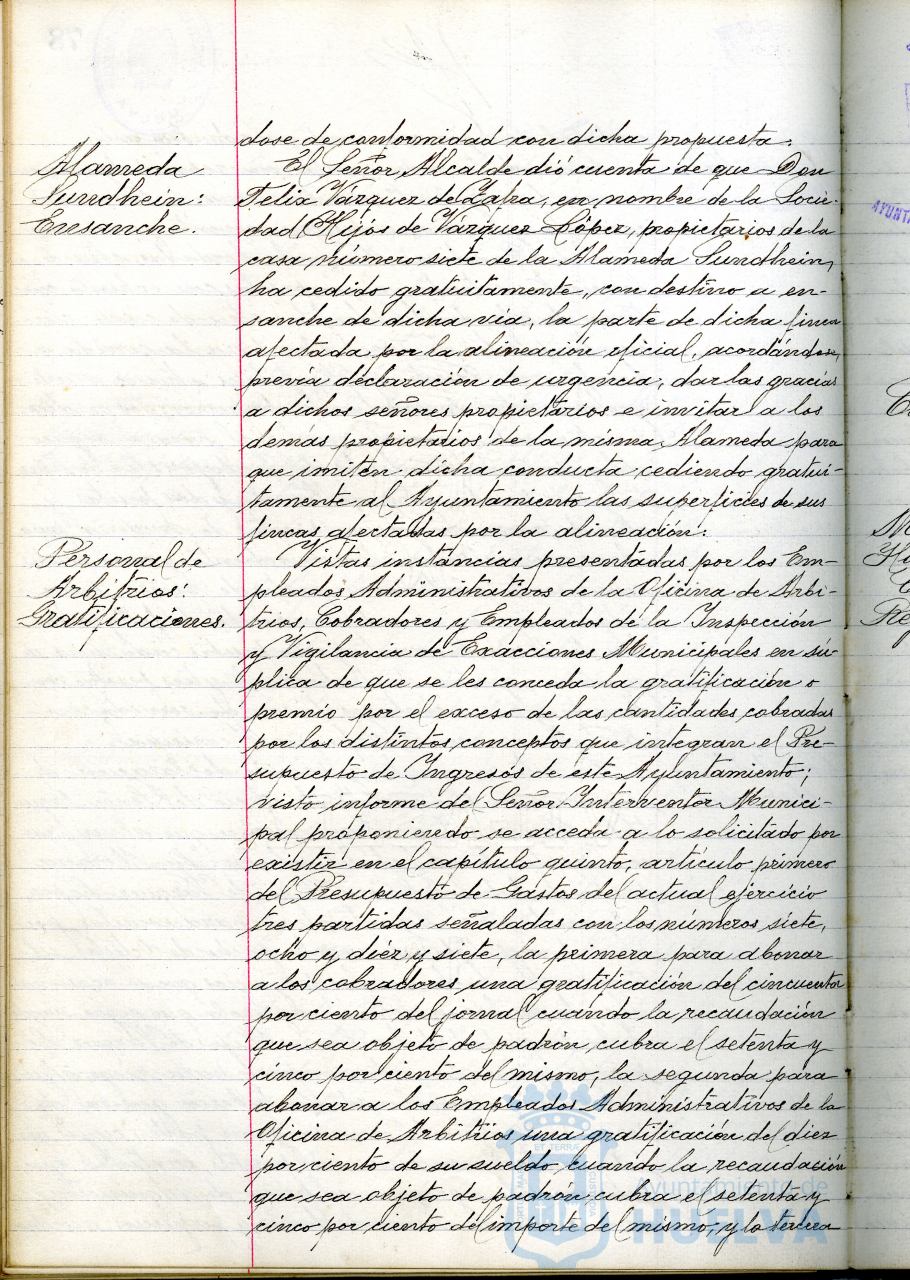 dose de conformidad con dicha propuesta.
Alameda
Sundhein:
Ensanche.
El Señor Alcalde dió cuenta de que Don
Felix Vázquez de Zafra, en nombre de la Socie-
dad Hijos de Vázquez López, propietarios de la
casa número siete de la Alameda Sundhein,
ha cedido gratuitamente, con destino a en-
sanche de dicha vía, la parte de dicha finca
afectada por la alineación oficial, acordándose,
previa declaración de urgencia, dar las gracias
a dichos señores propietarios e invitar a los
demás propietarios de la misma Alameda para
que imiten dicha conducta cediendo gratui-
tamente al Ayuntamiento las superficies de sus
fincas afectadas por la alineación.
Personal de
Arbitrios:
Gratificaciones.
Vistas instancias presentadas por los Em-
pleados Administrativos de la Oficina de Arbi-
trios, Cobradores y Empleados de la Inspección
y Vigilancia de Exacciones Municipales en sú-
plica de que se les conceda la gratificación o
premio por el exceso de las cantidades cobradas
por los distintos conceptos que integran el Pre-
supuesto de Ingresos de este Ayuntamiento;
visto informe del Señor Interventor Munici-
pal proponiendo se acceda a lo solicitado por
existir en el capítulo quinto, artículo primero
del Presupuesto de Gastos del actual ejercicio
tres partidas señaladas con los números siete,
ocho y diez y siete, la primera para abonar
a los cobradores una gratificación del cincuenta
por ciento del jornal cuando la recaudación
que sea objeto de padrón, cubra el setenta y
cinco por ciento del mismo, la segunda para
abonar a los Empleados Administrativos de la
Oficina de Arbitrios una gratificación del diez
por ciento de su sueldo, cuando la recaudación
que sea objeto de padrón cubra el setenta y
cinco por ciento del importe del mismo, y la tercera
Ayuntamiento de
HUELVA